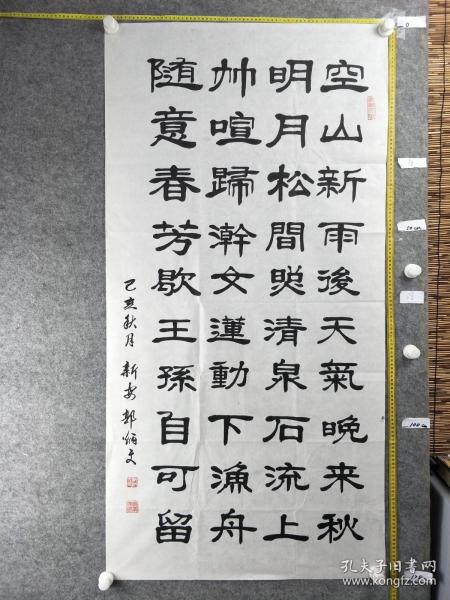 空山新雨後天氣晚来秋
明月松間照清泉石流上
竹喧歸澣女蓮動下漁舟
随意春芳歇王孫自可留
己亥秋月 新安郭炳文
0
50cm
100cm
孔夫子旧书网
www.kongfz.com